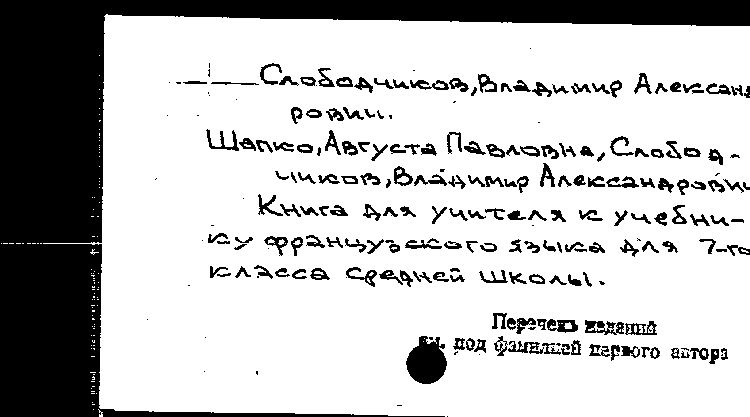 Слободчиков, Владимир Александ
рович.
Шапко, Августа Павловна, Слобод-
чиков, Владимир Александрович
Книга для учителя к учебни-
ку французского языка для 7-го
класса средней школы.
Перечень изданий
см. под фамилией первого автора